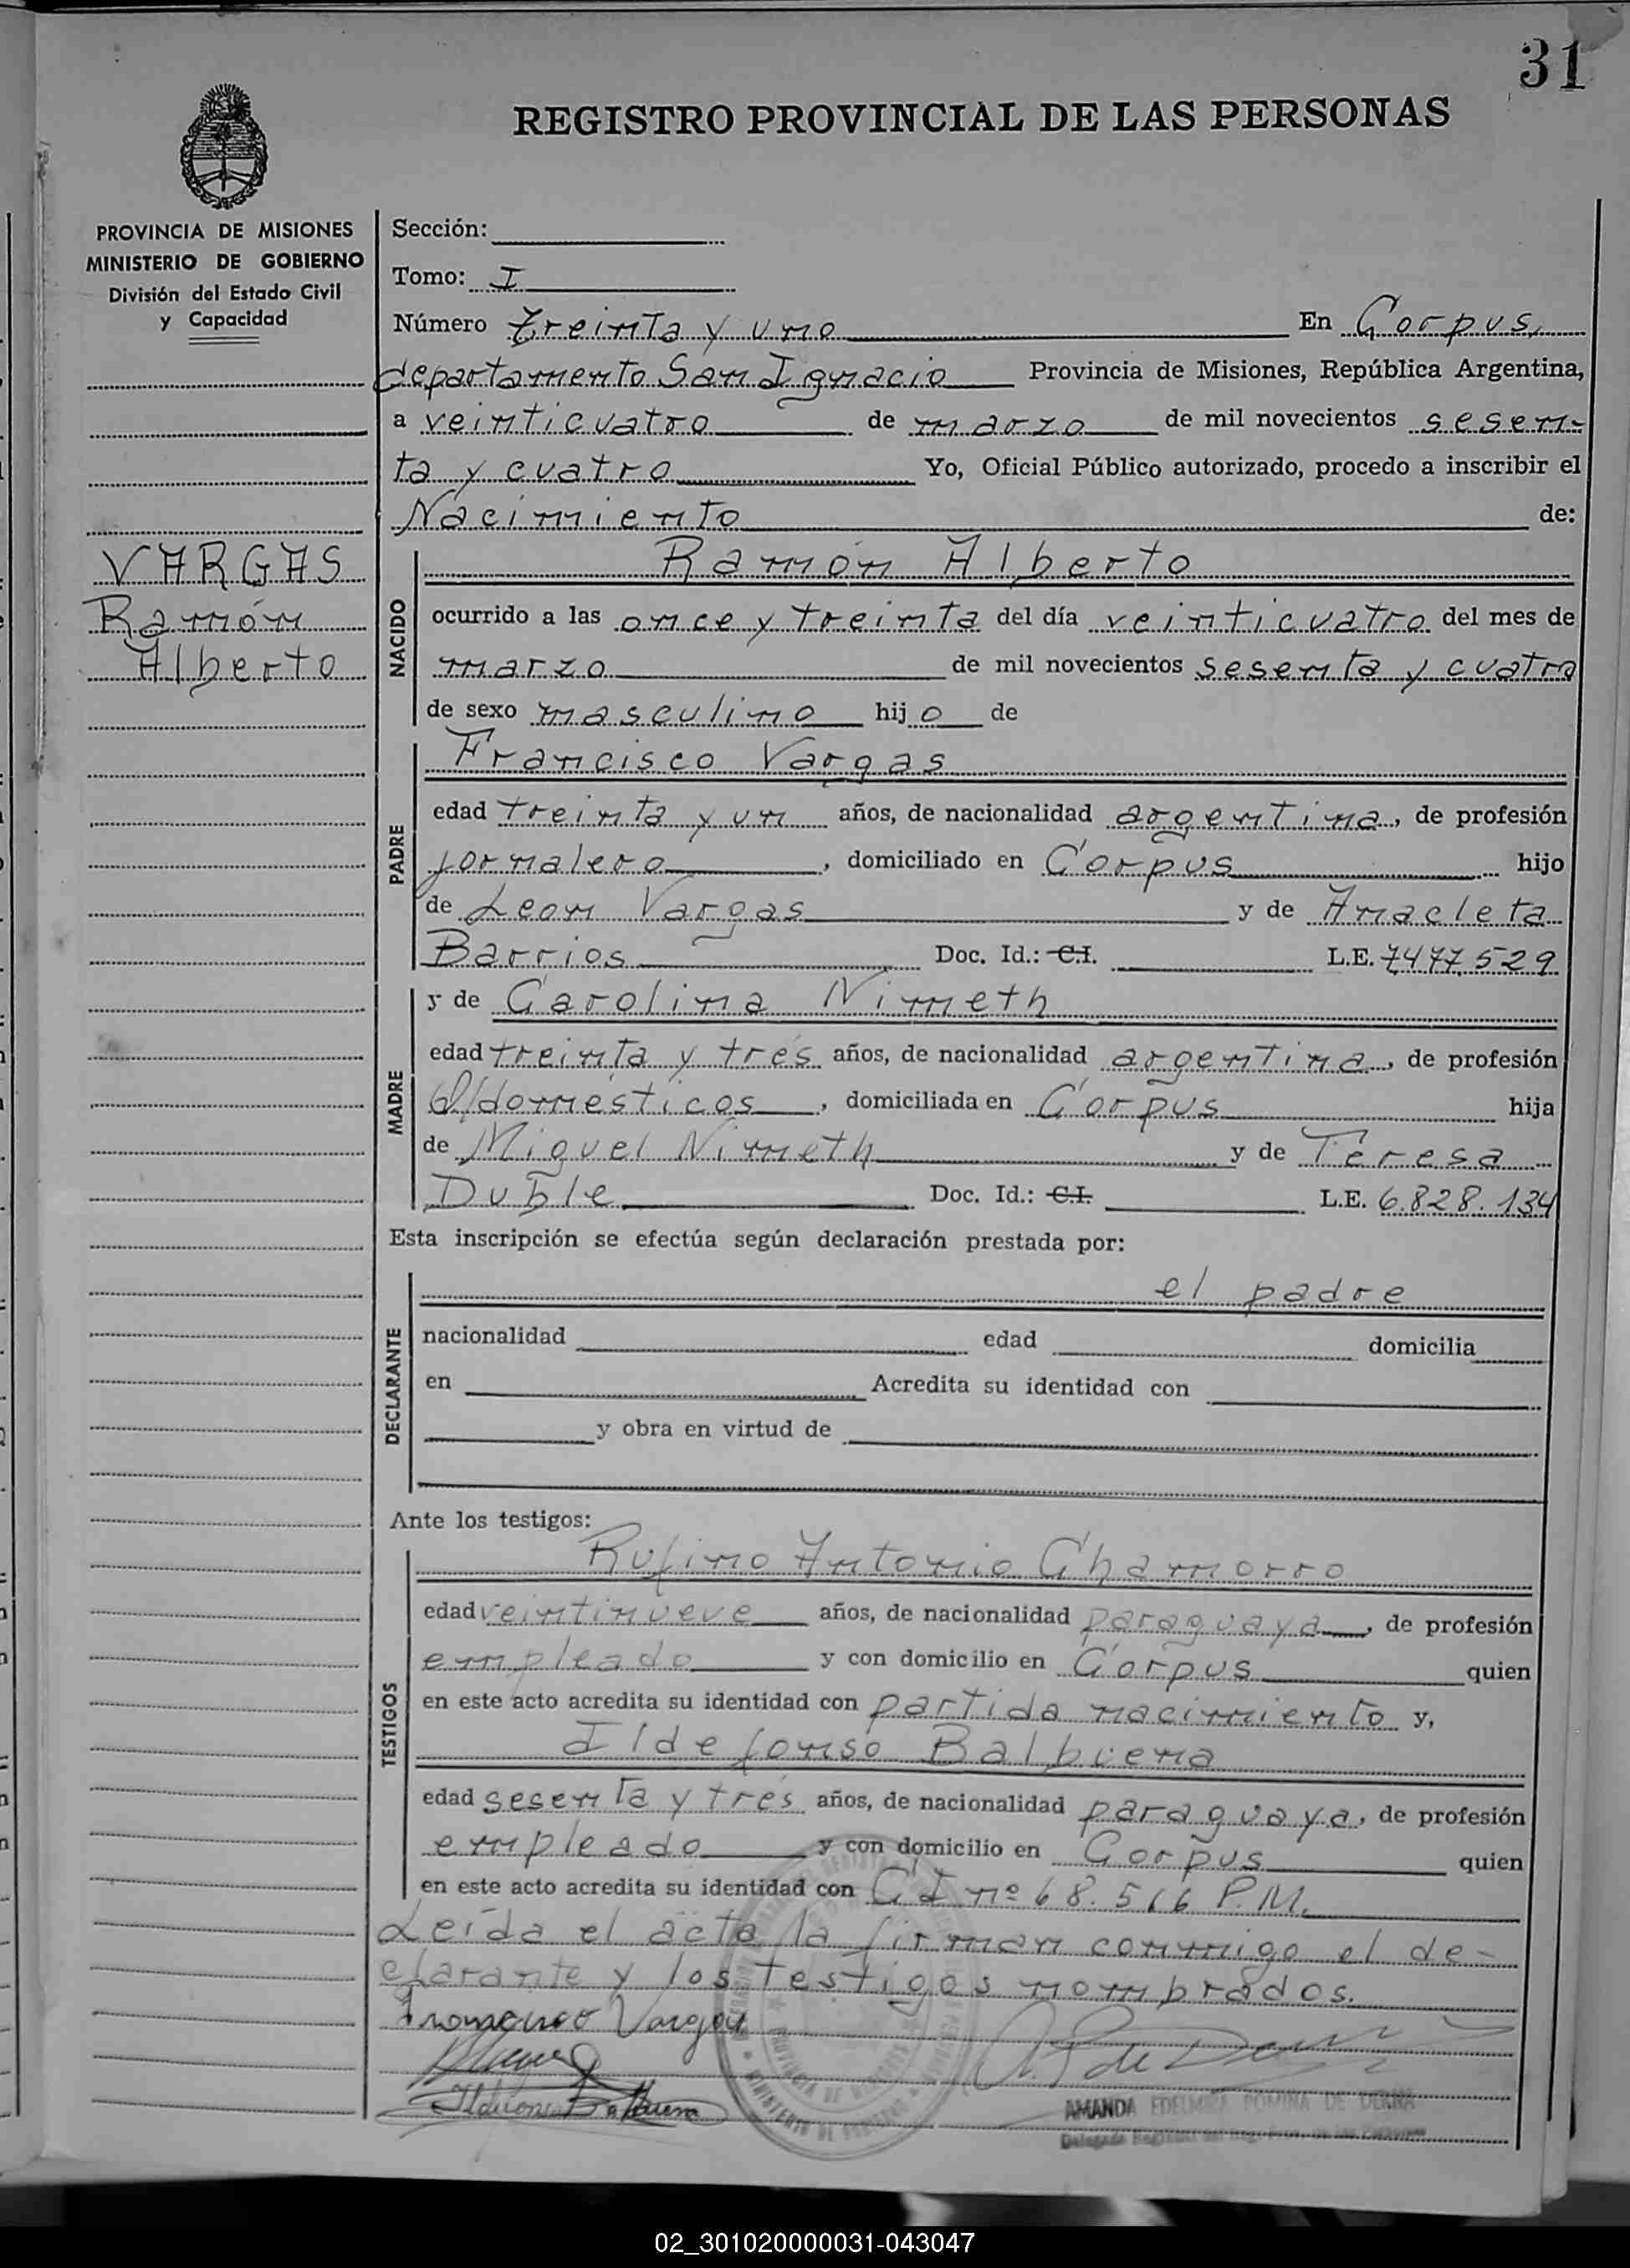 31
REGISTRO PROVINCIAL DE LAS PERSONAS
PROVINCIA DE MISIONES
MINISTERIO DE GOBIERNO
División del Estado Civil
y Capacidad
VARGAS
Ramón
Alberto
Sección:
Tomo: I
Número treinta y uno En Corpus,
departamento San Ignacio Provincia de Misiones, República Argentina,
a veinticuatro de marzo de mil novecientos sesen-
ta y cuatro Yo, Oficial Público autorizado, procedo a inscribir el
Nacimiento de:
NACIDO
Ramón Alberto
ocurrido a las once y treinta del día veinticuatro del mes de
marzo de mil novecientos sesenta y cuatro
de sexo masculino hijo de
PADRE
Francisco Vargas
edad treinta y un años, de nacionalidad argentina, de profesión
jornalero, domiciliado en Corpus hijo
de Leon Vargas y de Anacleta
Barrios Doc. Id.: C.I. L.E. 7477.529
MADRE
y de Carolina Nimeth
edad treinta y tres años, de nacionalidad argentina, de profesión
Q/domésticos, domiciliada en Corpus hija
de Miguel Nimeth y de Teresa
Duble Doc. Id.: C.I. L.E. 6.828.134
Esta inscripción se efectúa según declaración prestada por:
DECLARANTE
el padre
nacionalidad edad domicilia
en Acredita su identidad con
y obra en virtud de
Ante los testigos:
TESTIGOS
Rufino Antonio Chamorro
edad veintinueve años, de nacionalidad paraguaya, de profesión
empleado y con domicilio en Corpus quien
en este acto acredita su identidad con partida nacimiento y,
Ildefonso Balbuena
edad sesenta y tres años, de nacionalidad paraguaya, de profesión
empleado y con domicilio en Corpus quien
en este acto acredita su identidad con CI nº 68.516 P.M.
Leída el acta la firman conmigo el de-
clarante y los testigos nombrados.
Francisco Vargas
Ildefonso Balbuena
AMANDA EDELMIRA POMINA DE DERNA
02_301020000031-043047